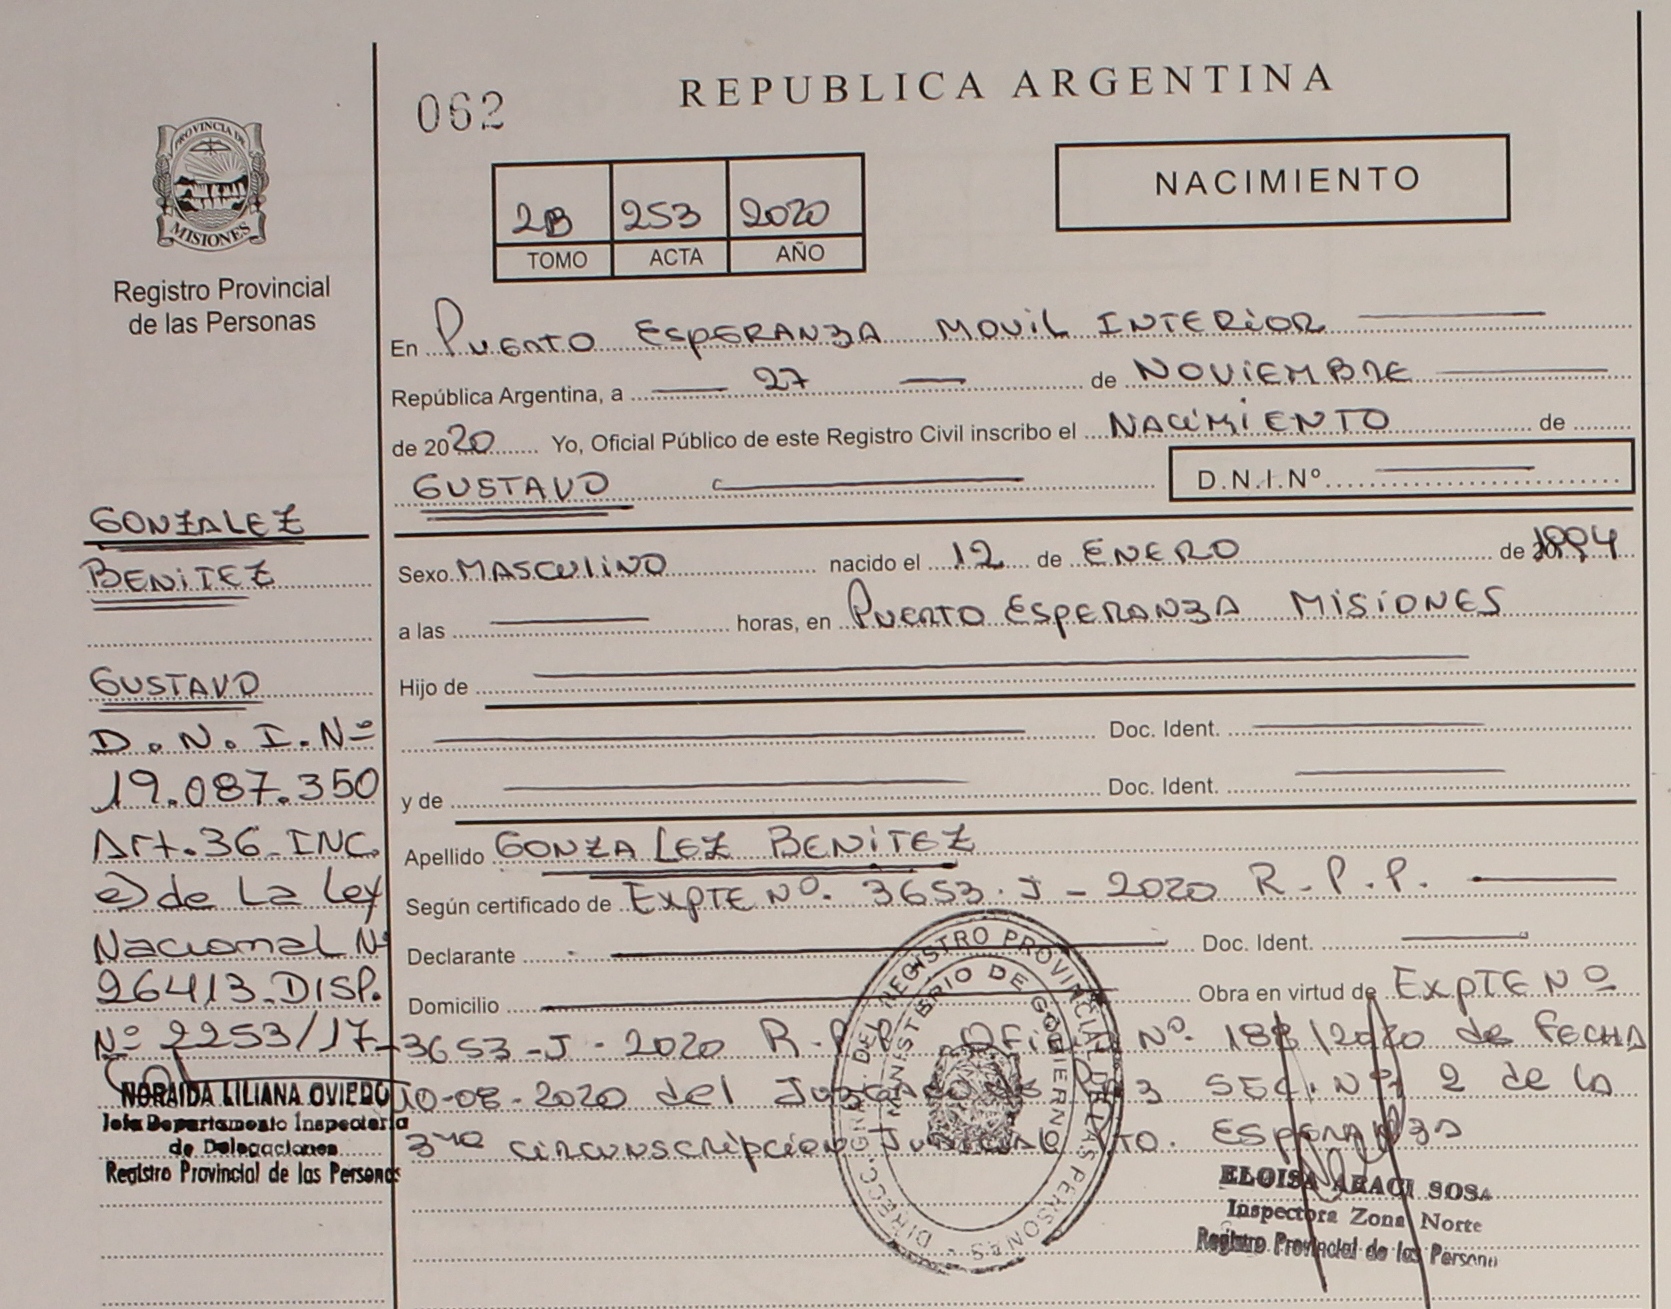 062
REPUBLICA ARGENTINA
PROVINCIA DE
MISIONES
Registro Provincial
de las Personas
2B 253 2020
TOMO ACTA AÑO
NACIMIENTO
En PUERTO ESPERANZA MOVIL INTERIOR
República Argentina, a 27 de NOVIEMBRE
de 2020 Yo, Oficial Público de este Registro Civil inscribo el NACIMIENTO de
GUSTAVO D.N.I.Nº
Sexo MASCULINO nacido el 12 de ENERO de 1994
a las horas, en PUERTO ESPERANZA MISIONES
Hijo de
Doc. Ident.
y de Doc. Ident.
Apellido GONZALEZ BENITEZ
Según certificado de EXPTE Nº. 3653-J-2020 R.P.P.
Declarante Doc. Ident.
Domicilio Obra en virtud de EXPTE Nº
3653-J-2020 R.P.P. Nº. /2020 de FECHA
10-08-2020 del 3 SEC. Nº 2 de la
3ra circunscripcion Judicial PTO. ESPERANZA
GONZALEZ
BENITEZ
GUSTAVO
D.N.I.Nº
19.087.350
Art.36-INC.
e) de La Ley
Nacional Nº
26413-DISP.
Nº 2253/17-
NORAIDA LILIANA OVIEDO
Jefa Departamento Inspectoria
de Delegaciones
Registro Provincial de las Personas
DIRECC. GRAL. DEL REGISTRO PROVINCIAL DE LAS PERSONAS
MINISTERIO DE GOBIERNO
ELOISA ARACI SOSA
Inspectora Zona Norte
Registro Provincial de las Persona